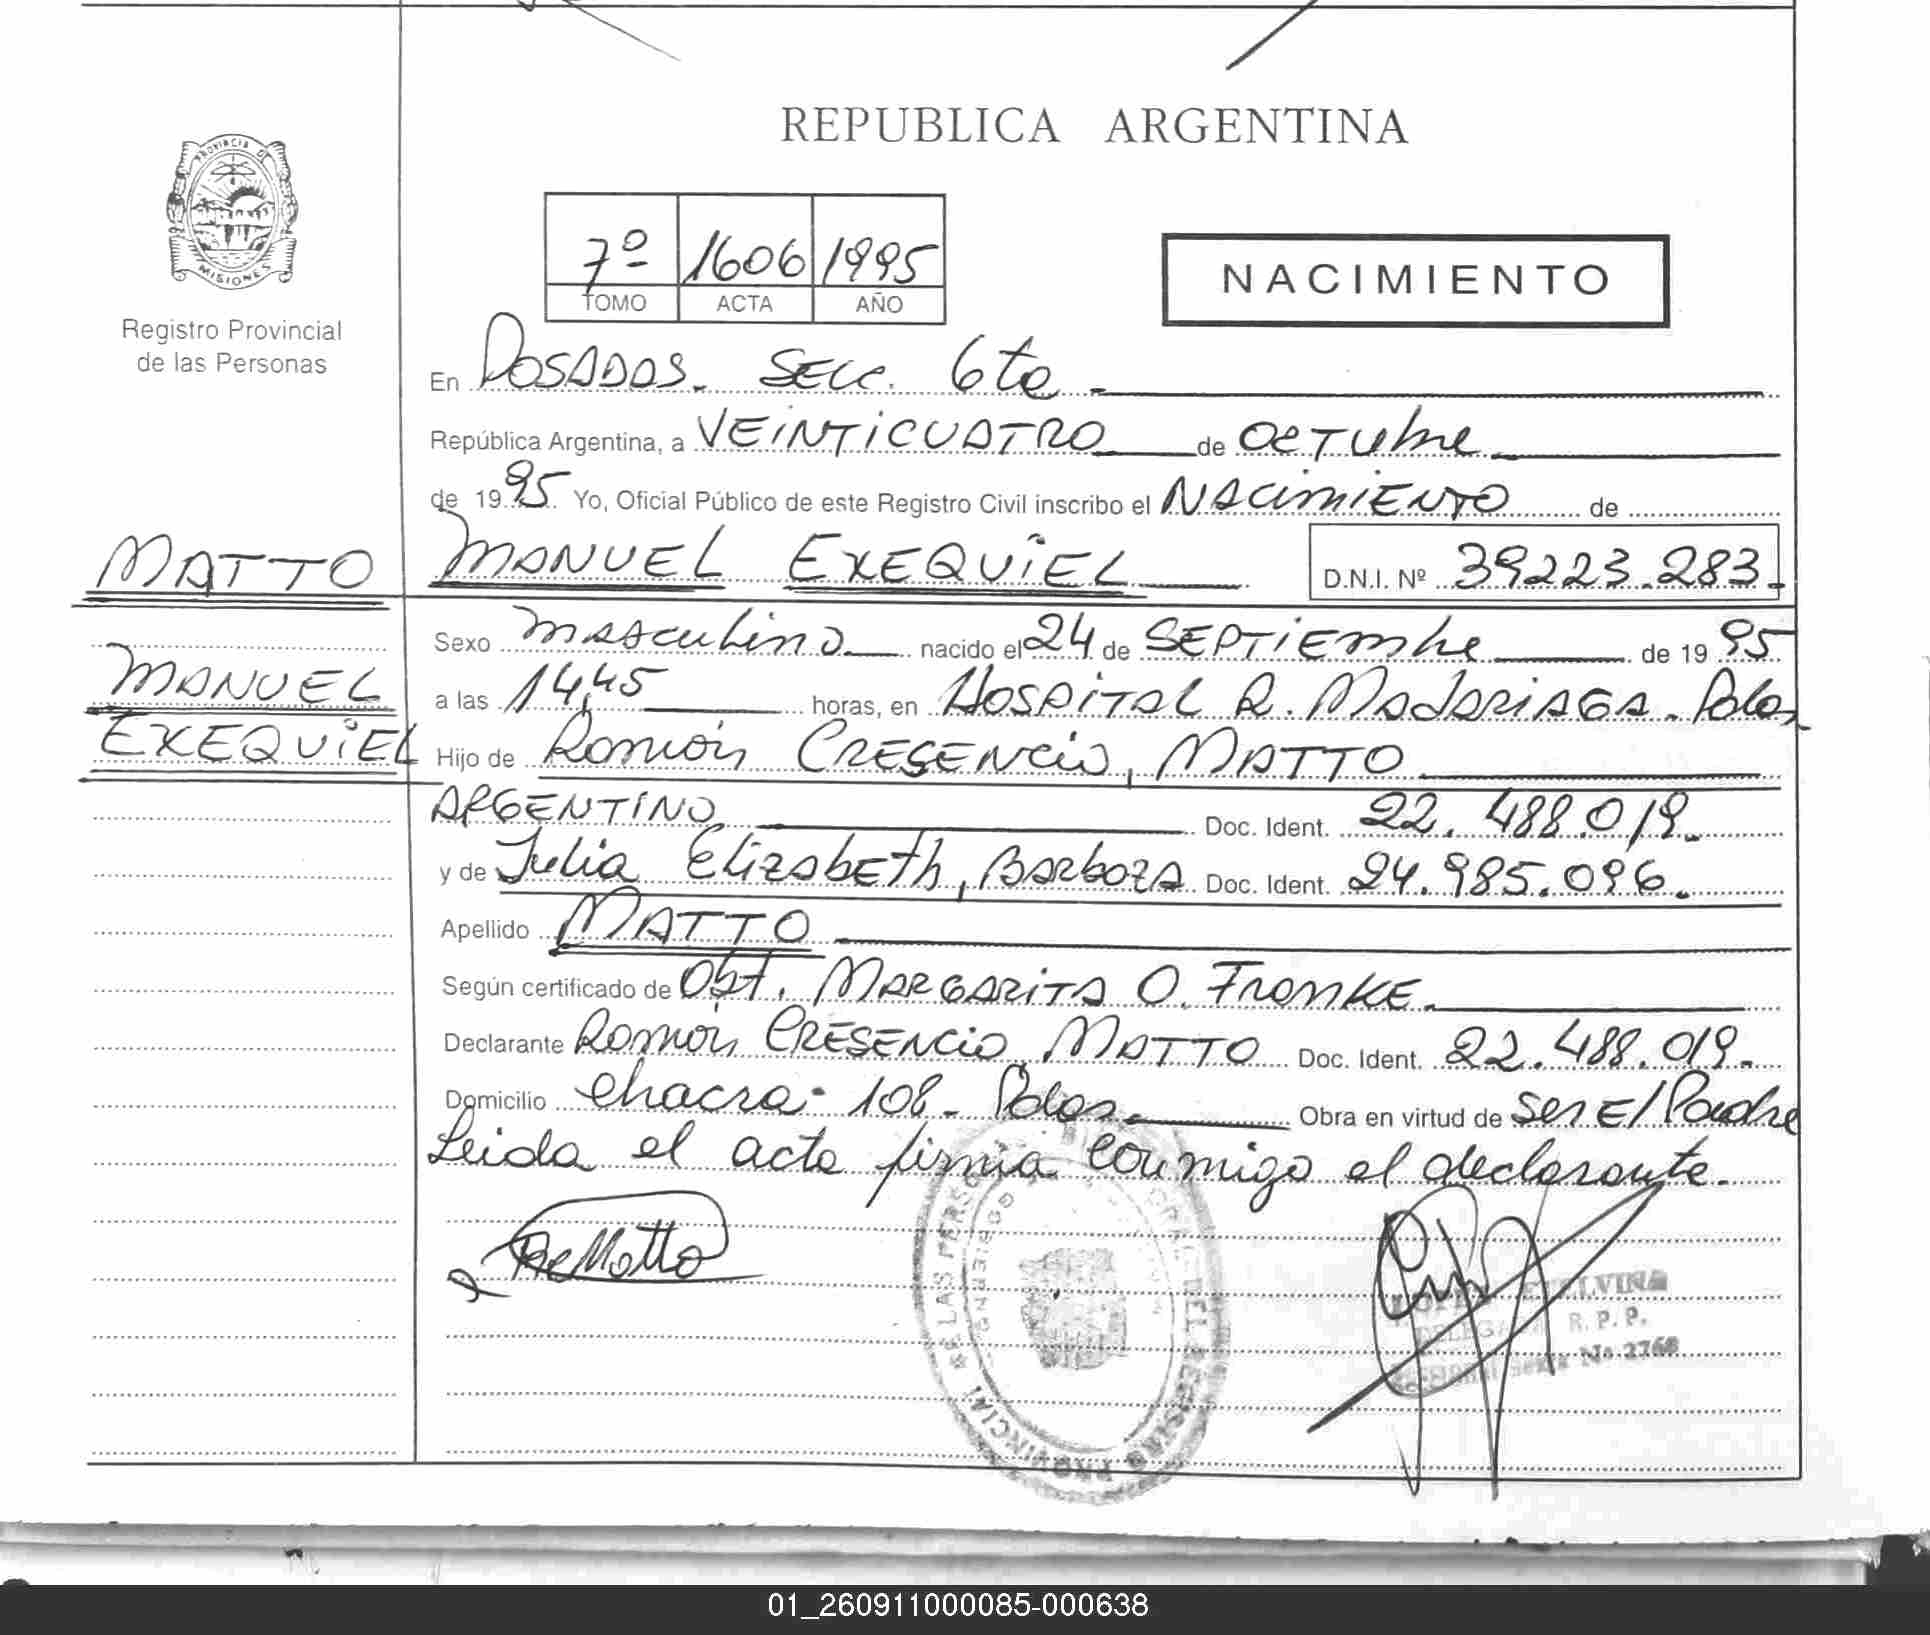 REPUBLICA ARGENTINA
PROVINCIA DE
MISIONES
Registro Provincial
de las Personas
7º 1606 1995
TOMO ACTA AÑO
NACIMIENTO
En Posadas. Secc. 6ta -
República Argentina, a VEINTICUATRO de OCTUbre
de 1995 Yo, Oficial Público de este Registro Civil inscribo el NACIMIENTO de
MATTO
MANUEL EXEQUIEL
D.N.I. Nº 39223.283.
MANUEL
EXEQUIEL
Sexo masculino nacido el 24 de SEPTIEmbre de 1995
a las 14,45 horas, en HOSPITAL R. MADARIAGA. Pdas.
Hijo de Ramón CRESENCio, MATTO
ARGENTINO Doc. Ident. 22.488.019.
y de Julia ElizabETh, Barboza Doc. Ident. 24.985.096.
Apellido MATTO
Según certificado de Obst. MARGARITA O. FranKE.
Declarante Ramón CRESENCio MATTO Doc. Ident. 22.488.019.
Domicilio chacra 108 - Pdas. Obra en virtud de ser El Padre
Leida el acta firma conmigo el declarante.
Matto
R. P. P.
Nº 2768
01_260911000085-000638